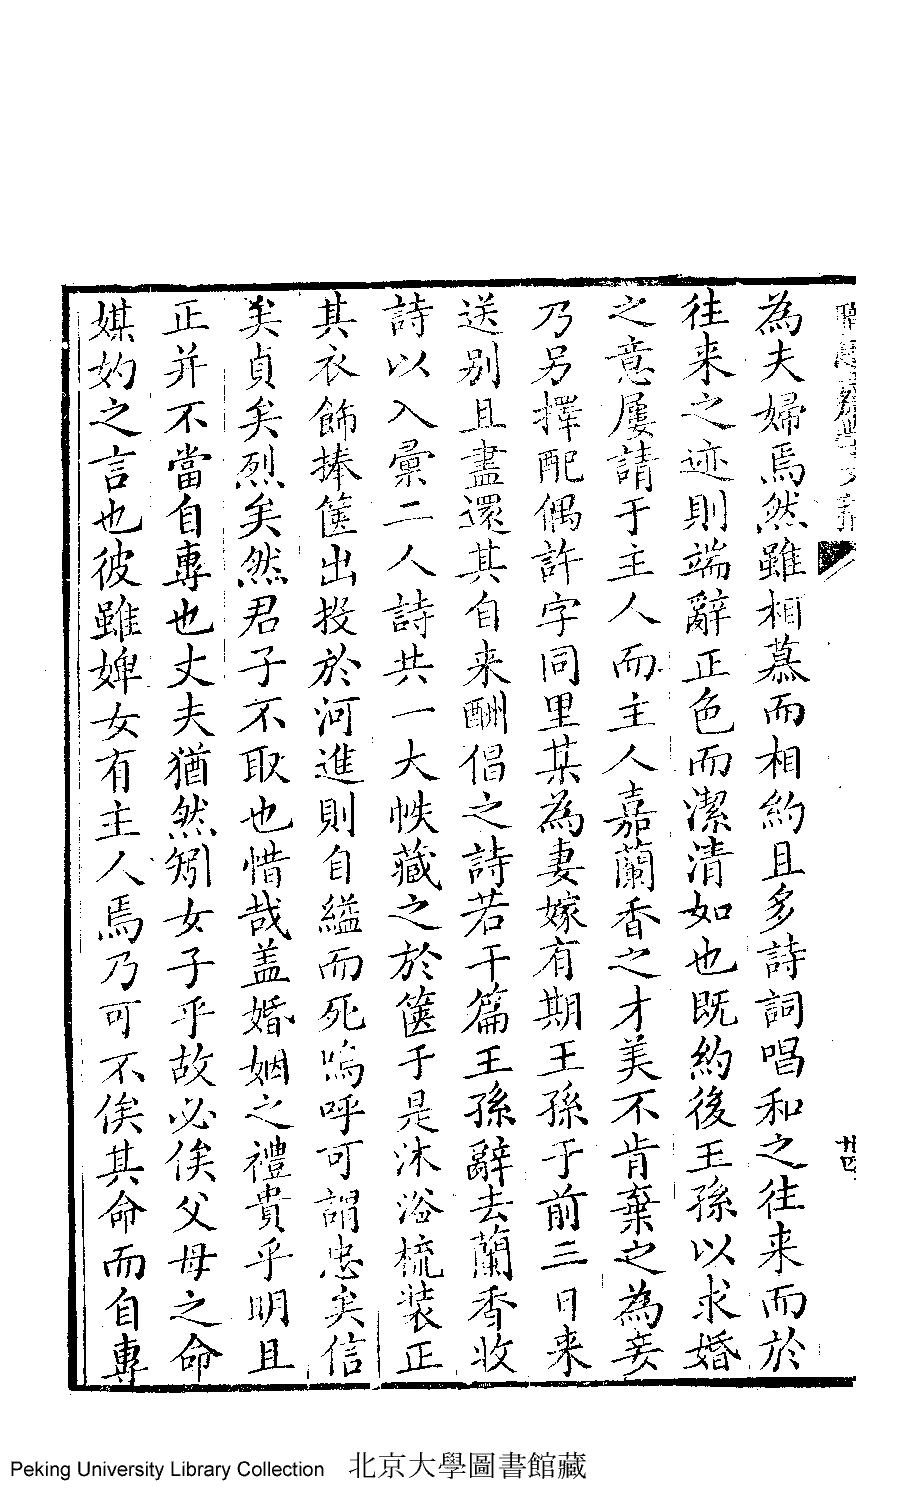 為夫婦焉然雖相慕而相約且多詩詞唱和之往来而於
往来之迹則端辭正色而潔清如也既約後王孫以求婚
之意屢請于主人而主人嘉蘭香之才美不肯棄之為妾
乃另擇配偶許字同里某為妻嫁有期王孫于前三日来
送别且盡還其自来酬倡之詩若干篇王孫辭去蘭香收
詩以入彙二人詩共一大帙藏之於篋于是沐浴梳装正
其衣飾捧篋出投於河進則自縊而死嗚呼可謂忠矣信
矣貞矣烈矣然君子不取也惜哉盖婚姻之禮貴乎明且
正并不當自專也丈夫猶然矧女子乎故必俟父母之命
媒妁之言也彼雖婢女有主人焉乃可不俟其命而自專
廿四
Peking University Library Collection 北京大學圖書館藏